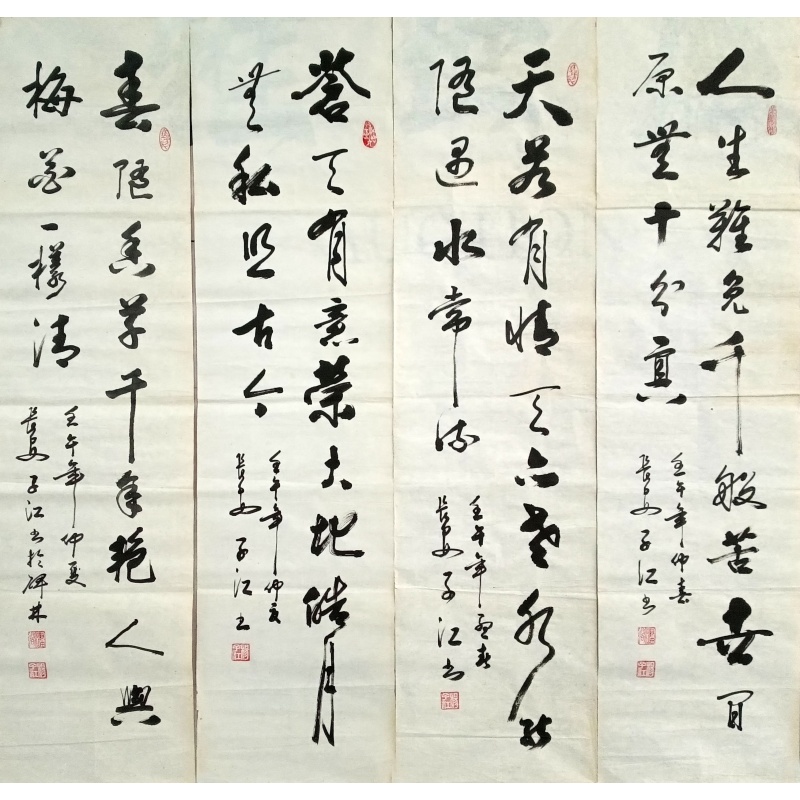 人生難免千般苦世間
原無十分真
壬午年仲春
長安子江書
天若有情天亦老能
隨遇水常流
壬午年孟春
長安子江書
蒼天有意榮大地皓月
無私照古今
壬午年仲夏
長安子江書
春隨香草千年艷人與
梅花一樣清
壬午年仲夏
長安子江書於碑林